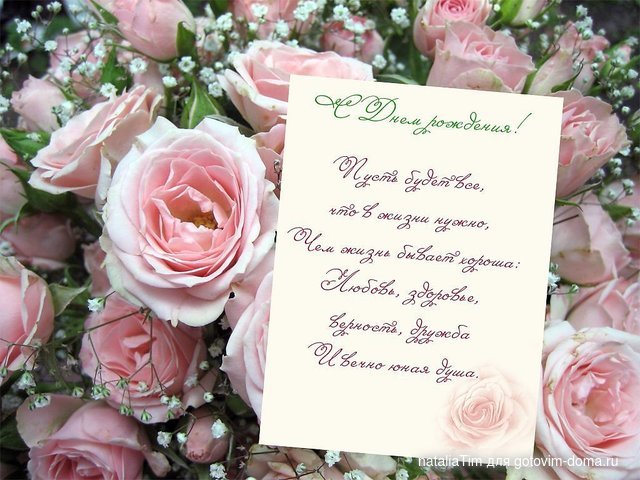 С Днем рождения!
Пусть будет все,
что в жизни нужно,
Чем жизнь бывает хороша:
Любовь, здоровье,
верность, дружба
И вечно юная душа.
nataliaTim для gotovim-doma.ru